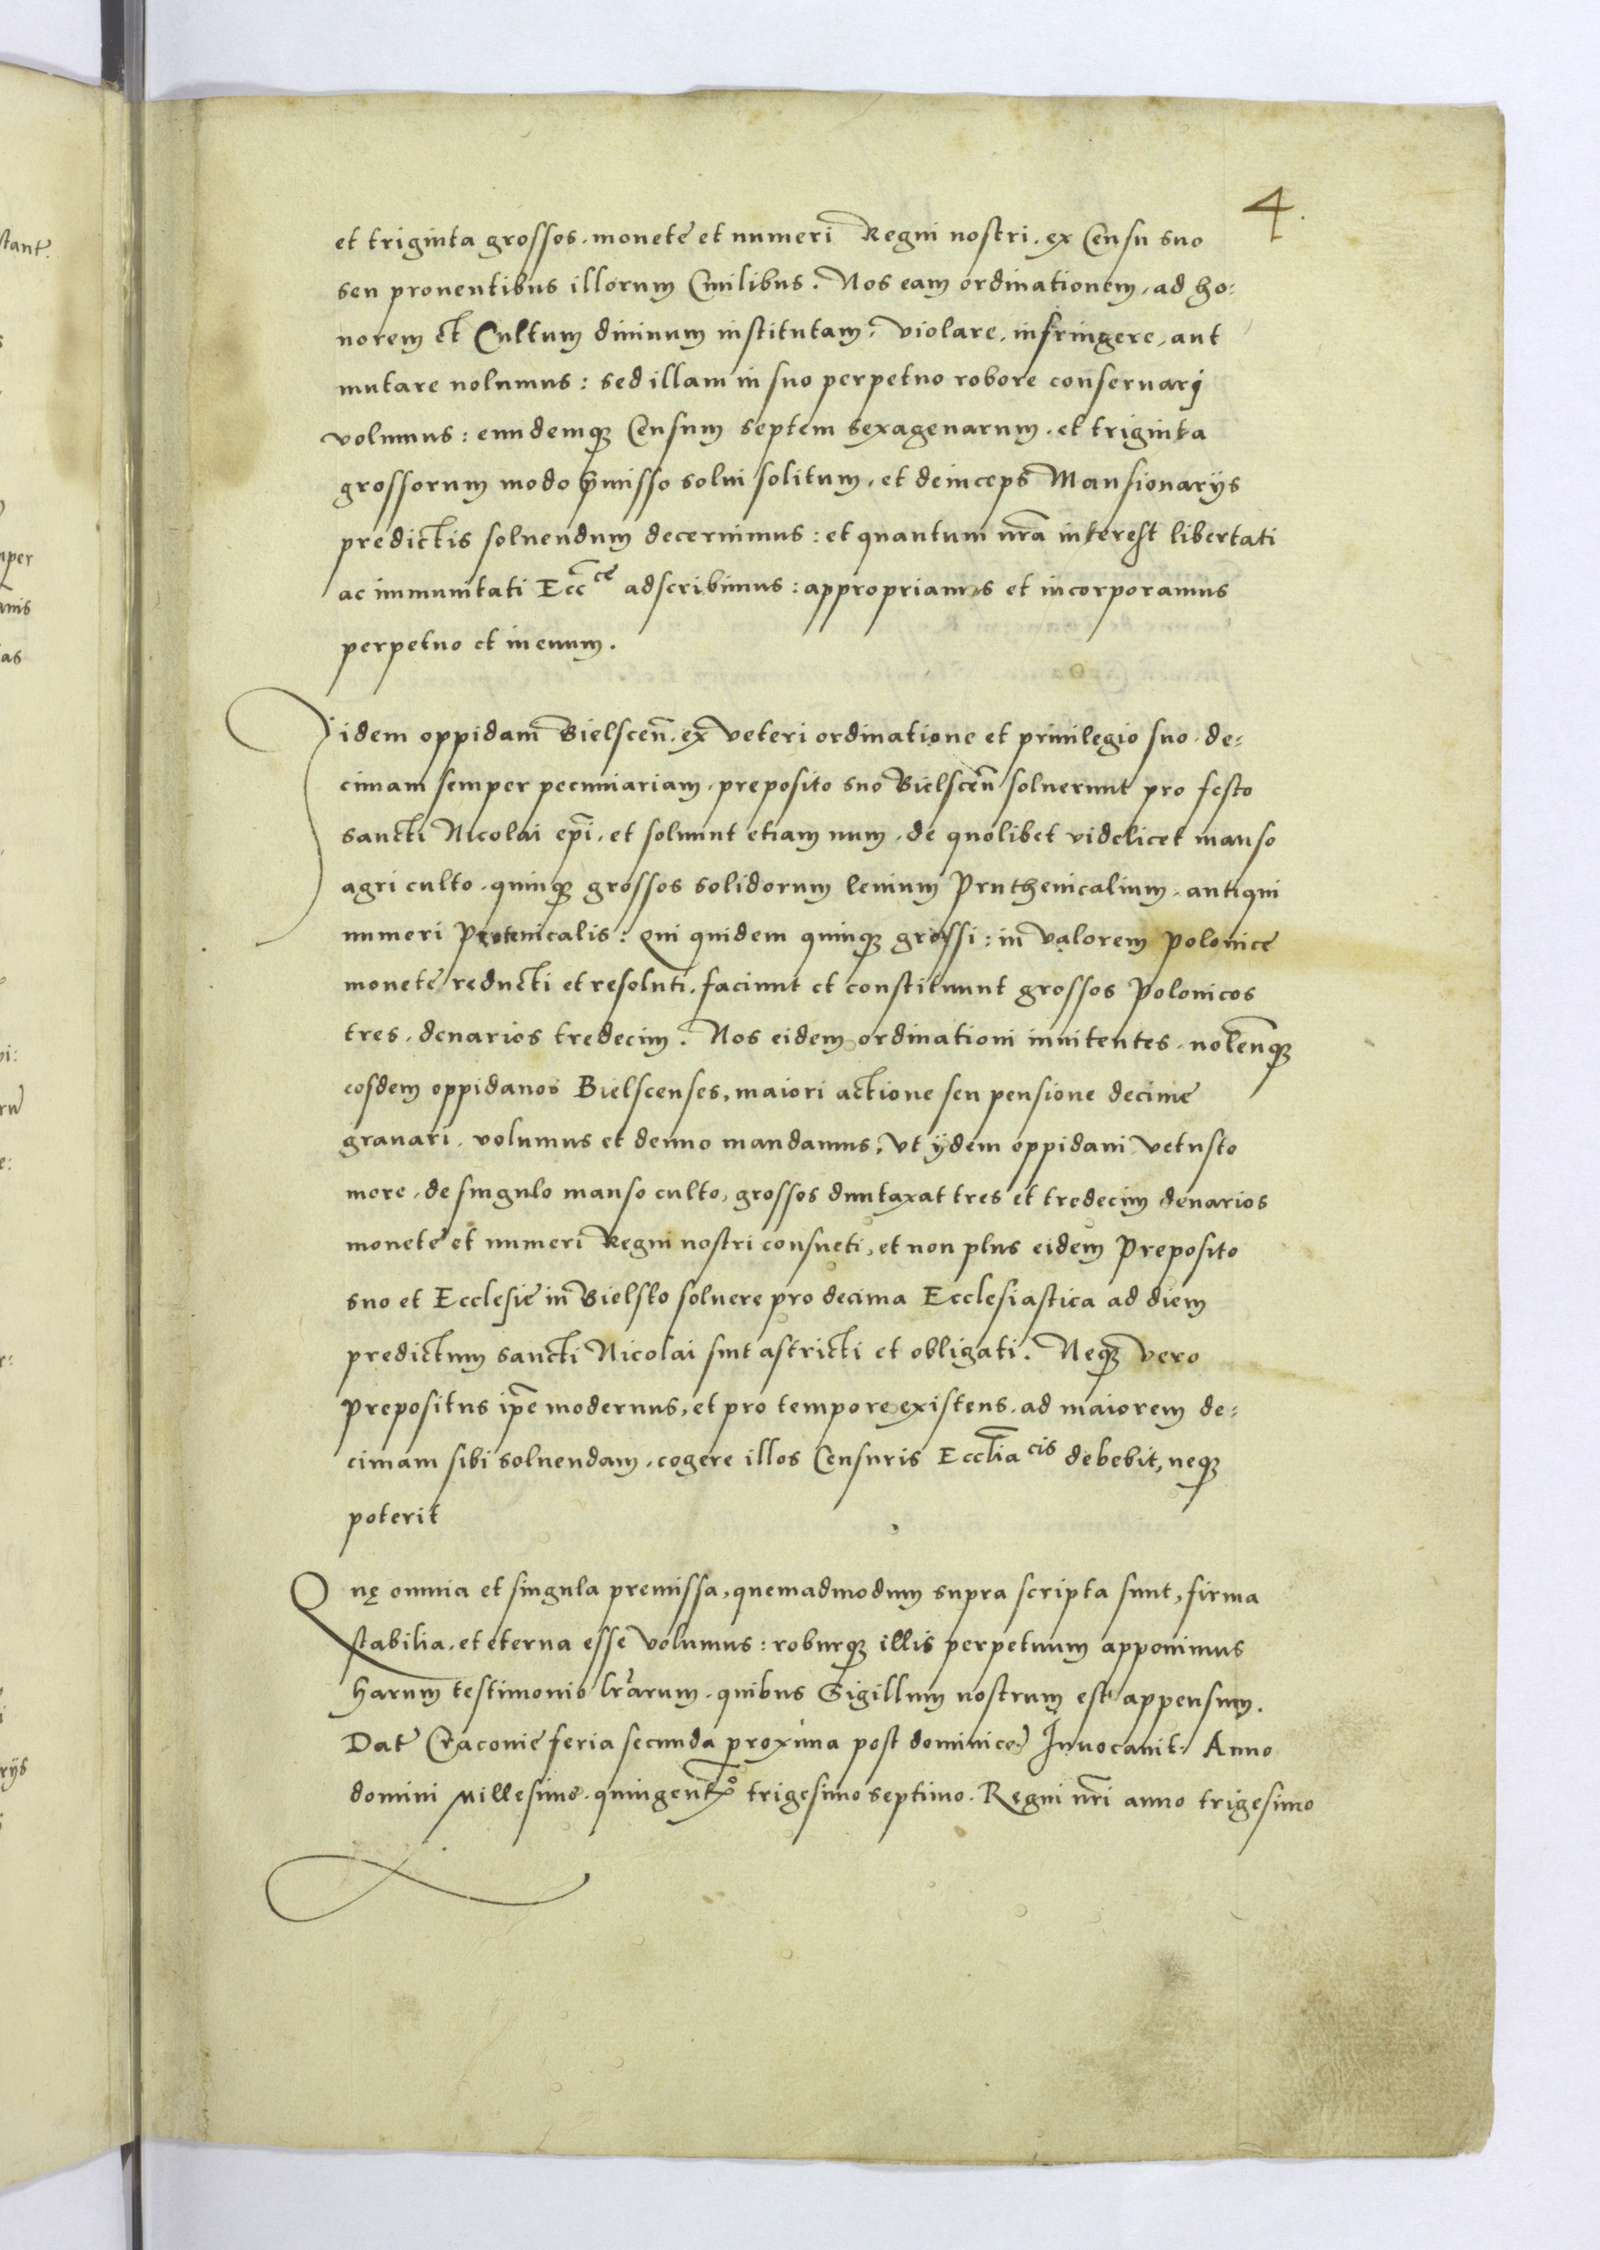 4.
et triginta grossos. monete et numeri Regni nostri. ex Censu suo
seu prouentibus illorum Ciuilibus. Nos eam ordinationem, ad ho:
norem et Cultum diuinum institutam: violare, infringere, aut
mutare nolumus: sed illam in suo perpetuo robore conseruari
volumus: eundemqꝫ Censum septem sexagenarum. et triginta
grossorum modo p̄misso solui solitum, et deinceps Mansionarijs
predictis soluendum decernimus: et quantum nr̄a interest libertati
ac immunitati Ecc̄ce adscribimus: appropriamus et incorporamus
perpetuo et in euum.
Jidem oppidani Bielscen̄. ex veteri ordinatione et priuilegio suo. de:
cimam semper pecuniariam, preposito suo Bielscen̄ soluerunt pro festo
sancti Nicolai ep̄i, et soluunt etiam num, de quolibet videlicet manso
agri culto. quinqꝫ grossos solidorum leuium Pruthenicalium, antiqui
numeri Prutenicalis: Qui quidem quinqꝫ grossi: in valorem Polonice
monete reducti et resoluti, faciunt et constituunt grossos Polonicos
tres, denarios tredecim. Nos eidem ordinationi innitentes, nolen̄qꝫ
eosdem oppidanos Bielscenses, maiori actione seu pensione decime
grauari, volumus et denuo mandamus, vt ijdem oppidani vetusto
more, de singulo manso culto, grossos duntaxat tres et tredecim denarios
monete et numeri Regni nostri consueti, et non plus eidem Preposito
suo et Ecclesie in Bielsko soluere pro decima Ecclesiastica ad diem
predictum sancti Nicolai sint astricti et obligati. Neqꝫ vero
prepositus ip̄e modernus, et pro tempore existens, ad maiorem de:
cimam sibi soluendam, cogere illos Censuris Eccl̄iacis debebit, neqꝫ
poterit
Quę omnia et singula premissa, quemadmodum supra scripta sunt, firma
stabilia, et eterna esse volumus: roburqꝫ illis perpetuum apponimus
harum testimonio lr̄arum, quibus Sigillum nostrum est appensum.
Dat̄ Cracouie feria secunda proxima post dominicā Inuocauit. Anno
domini Millesimo. quingent̄o trigesimo septimo. Regni nr̄i anno trigesimo